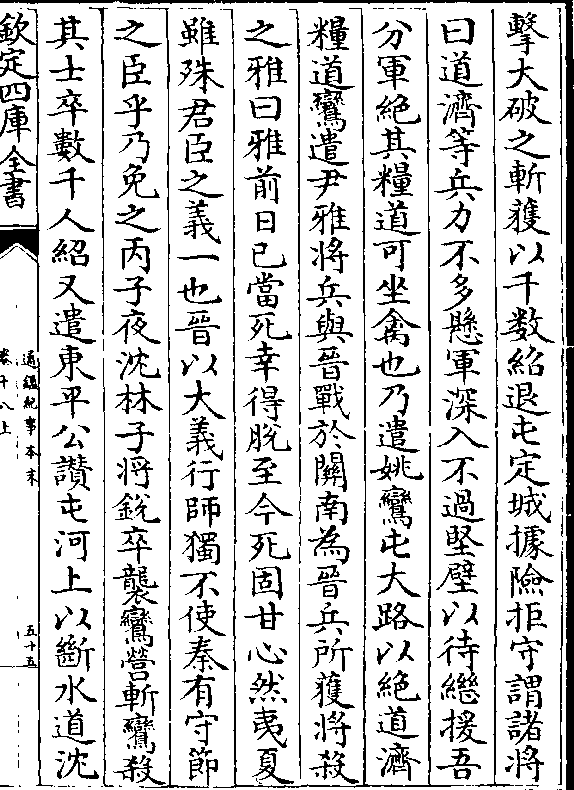 擊大破之斬獲以千数紹退屯定城據險拒守謂諸将
曰道濟等兵力不多懸軍深入不過堅壁以待繼援吾
分軍絶其糧道可坐禽也乃遣姚鸞屯大路以絶道濟
糧道鸞遣尹雅将兵與晉戰於關南為晉兵所獲将殺
之雅曰雅前日已當死幸得脫至今死固甘心然夷夏
雖殊君臣之義一也晉以大義行師獨不使秦有守節
之臣乎乃免之丙子夜沈林子将銳卒襲鸞營斬鸞殺
其士卒數千人紹又遣東平公讃屯河上以斷水道沈
欽定四庫全書
通鑑紀事本末
卷十八上
五十五